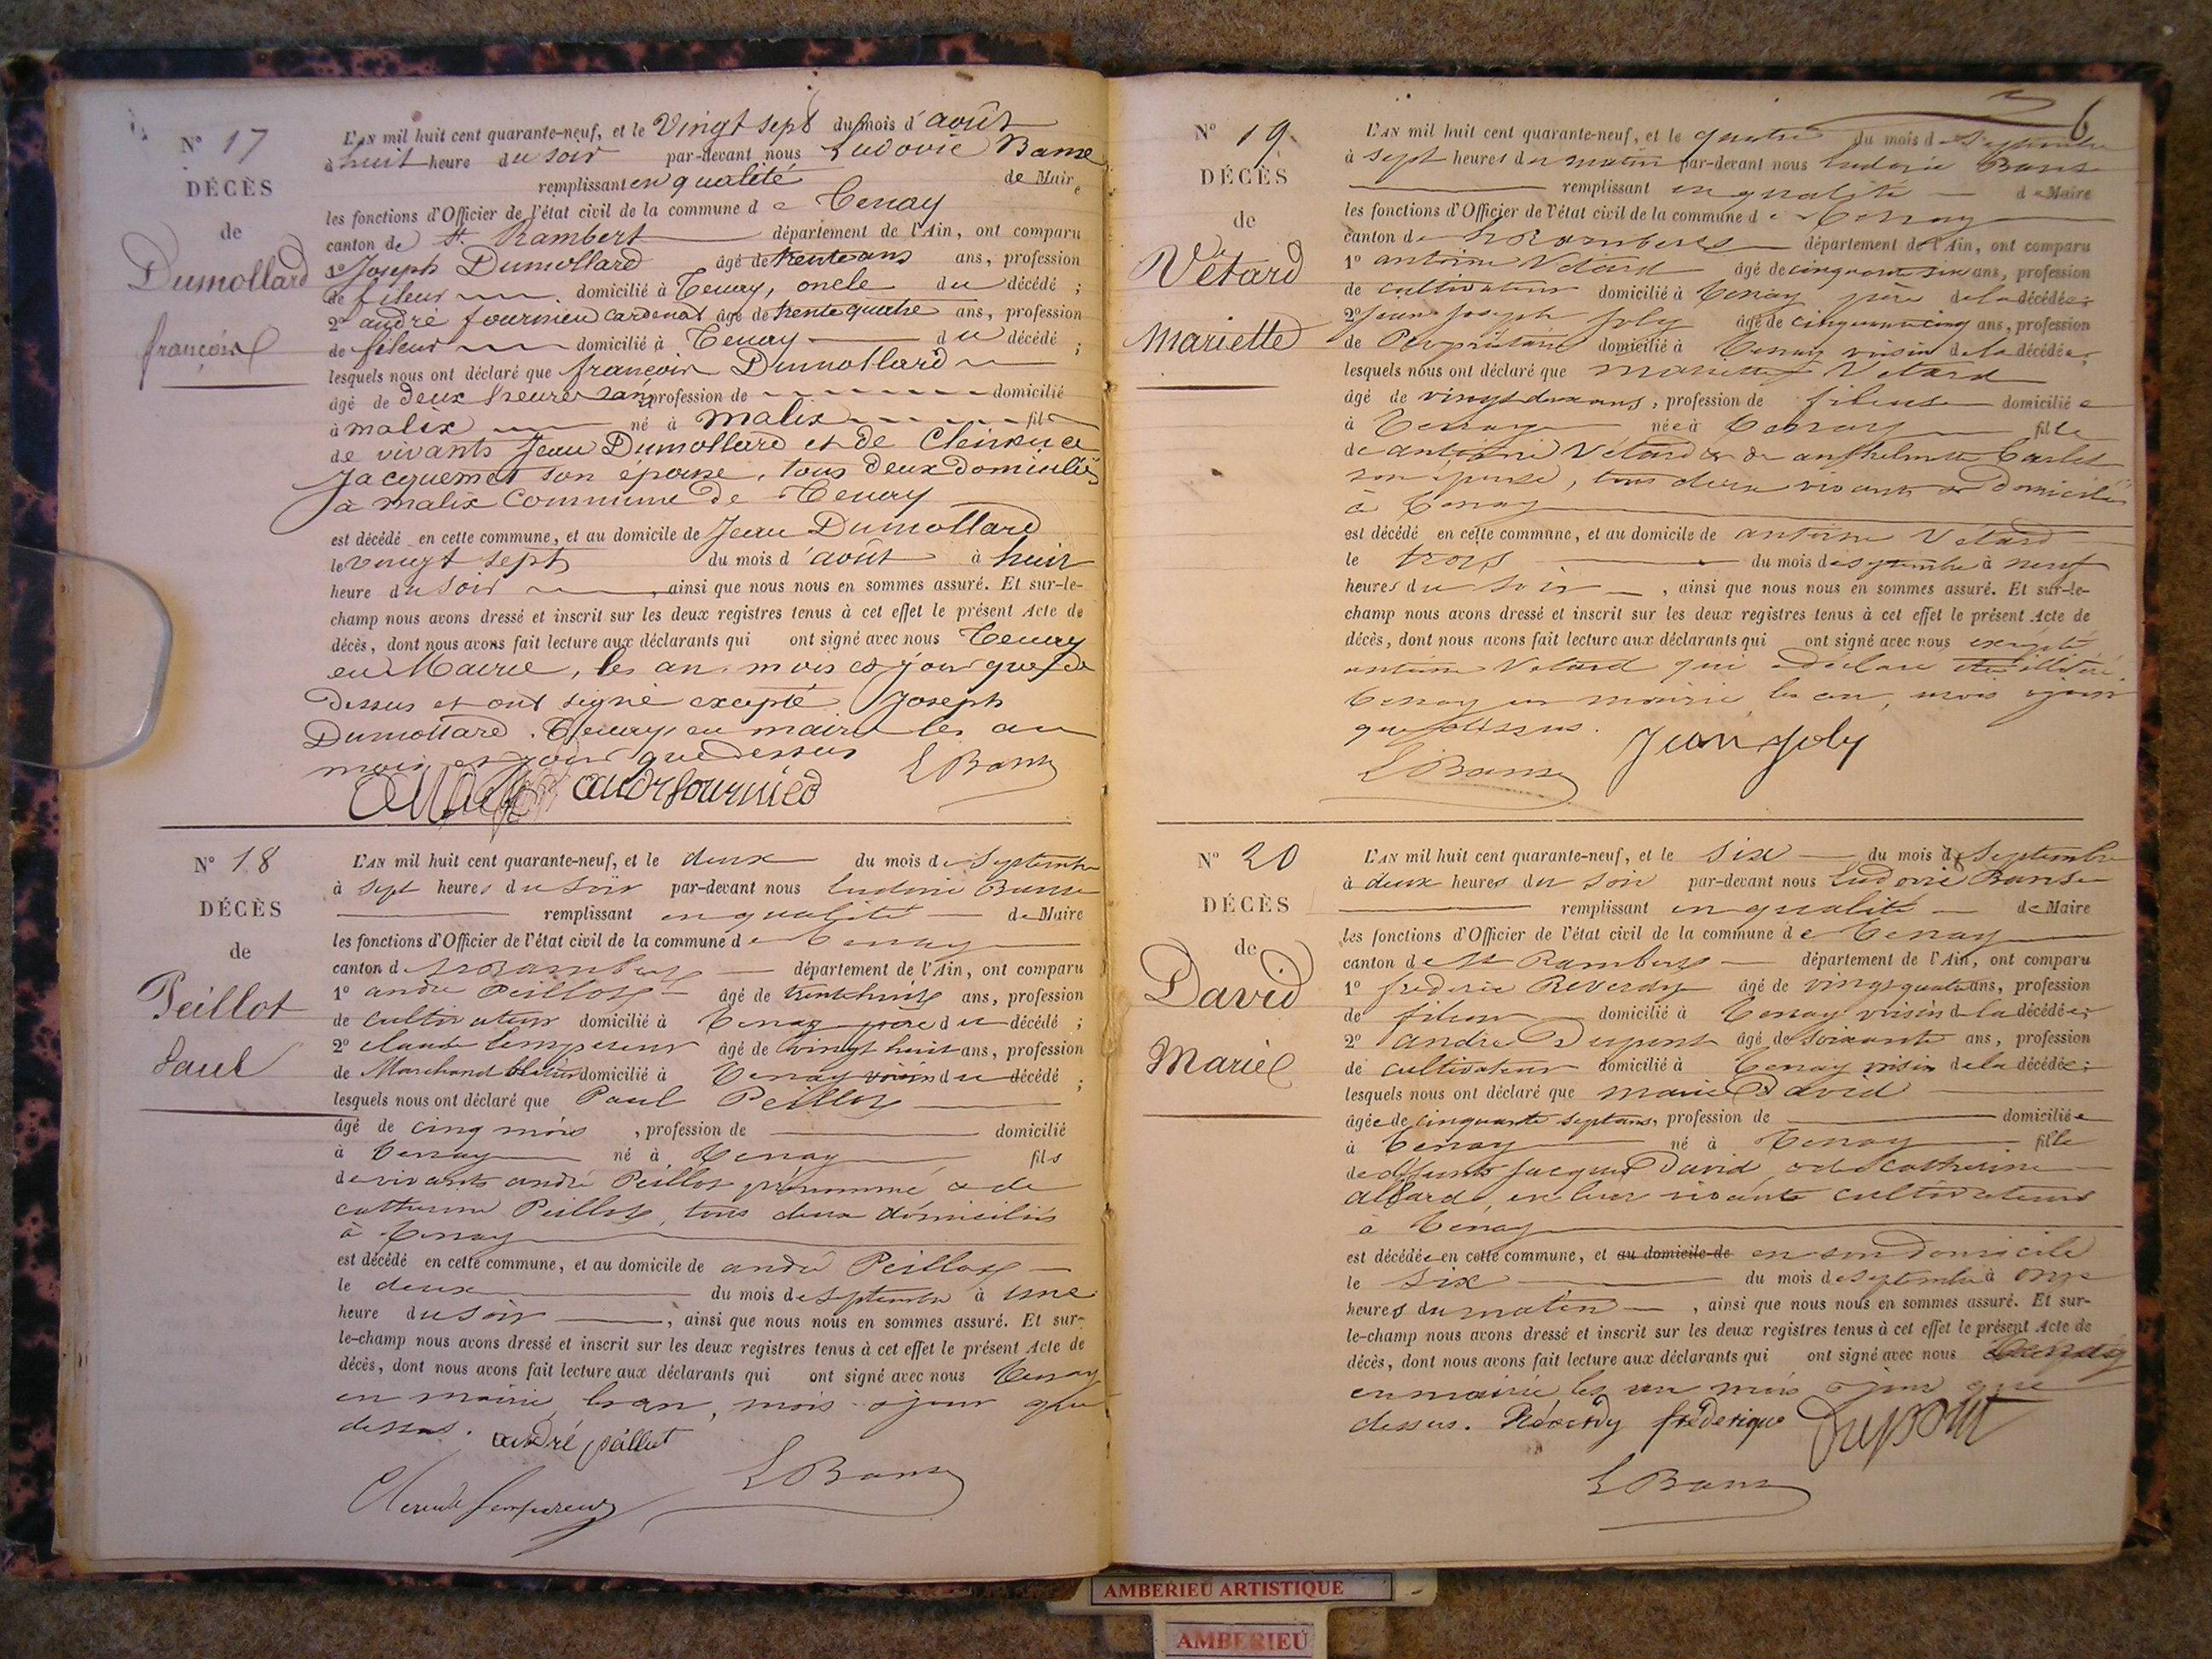 N° 17
DÉCÈS
de
Dumollard
françois
L'AN mil huit cent quarante-neuf, et le Vingt sept du mois d'août
à huit heure du soir par-devant nous Ludovic Banse
remplissant en qualité de Maire
les fonctions d'Officier de l'état civil de la commune de Tenay
canton de St. Rambert département de l'Ain, ont comparu
1° Joseph Dumollard âgé de trente ans ans, profession
de fileur domicilié à Tenay, oncle du décédé ;
2° andré fournier cardenat âgé de trente quatre ans, profession
de fileur domicilié à Tenay du décédé ;
lesquels nous ont déclaré que françois Dumollard
âgé de deux heures sans profession de domicilié
à malix né à malix fils
de vivants Jean Dumollard et de Clémence
Jacquemet son épouse, tous deux domiciliés
à malix Commune de Tenay
est décédé en cette commune, et au domicile de Jean Dumollard
le vingt sept du mois d'août à huit
heure du soir, ainsi que nous nous en sommes assuré. Et sur-le-
champ nous avons dressé et inscrit sur les deux registres tenus à cet effet le présent Acte de
décès, dont nous avons fait lecture aux déclarants qui ont signé avec nous Tenay
en Mairie, les an, mois et jour que
Dessus et ont signé excepté Joseph
Dumollard. Tenay, en mairie les an
mois et jour que dessus LBanse
andré fournied
N° 18
DÉCÈS
de
Peillot
Paul
L'AN mil huit cent quarante-neuf, et le deux du mois de Septembre
à sept heures du soir par-devant nous Ludovic Banse
remplissant en qualité de Maire
les fonctions d'Officier de l'état civil de la commune de Tenay
canton de St Rambert département de l'Ain, ont comparu
1° andré Peillot âgé de trente huit ans, profession
de cultivateur domicilié à Tenay père du décédé ;
2° claude lempereur âgé de vingt huit ans, profession
de Marchand domicilié à Tenay voisin du décédé ;
lesquels nous ont déclaré que Paul Peillot
âgé de cinq mois, profession de domicilié
à Tenay né à Tenay fils
de vivants andré Peillot prénommé & de
catherine Peillot, tous deux domiciliés
à Tenay
est décédé en cette commune, et au domicile de andré Peillot
le deux du mois de septembre à une
heure du soir, ainsi que nous nous en sommes assuré. Et sur-
le-champ nous avons dressé et inscrit sur les deux registres tenus à cet effet le présent Acte de
décès, dont nous avons fait lecture aux déclarants qui ont signé avec nous Tenay
en mairie les an, mois & jour que
dessus. andré peillot
Claude lempereur LBanse
N° 19
DÉCÈS
de
Vétard
Mariette
6
L'AN mil huit cent quarante-neuf, et le quatre du mois de Septembre
à sept heures du matin par-devant nous Ludovic Banse
remplissant en qualité de Maire
les fonctions d'Officier de l'état civil de la commune de Tenay
canton de St Rambert département de l'Ain, ont comparu
1° antoine Vétard âgé de cinquante six ans, profession
de cultivateur domicilié à Tenay père de la décédée ;
2° Jean Joseph Joly âgé de cinquante cinq ans, profession
de Propriétaire domicilié à Tenay voisin de la décédée ;
lesquels nous ont déclaré que mariette Vétard
âgé de vingt deux ans, profession de fileuse domiciliée
à Tenay née à Tenay fille
de antoine Vétard & de anthelmette Carlet
son épouse, tous deux vivants & domiciliés
à Tenay
est décédé en cette commune, et au domicile de antoine Vétard
le trois du mois de septembre à neuf
heures du soir, ainsi que nous nous en sommes assuré. Et sur-le-
champ nous avons dressé et inscrit sur les deux registres tenus à cet effet le présent Acte de
décès, dont nous avons fait lecture aux déclarants qui ont signé avec nous excepté
antoine Vétard qui a déclaré être illitéré.
Tenay en mairie, les an, mois & jour
que dessus. Jean joly
LBanse
N° 20
DÉCÈS
de
David
Marie
L'AN mil huit cent quarante-neuf, et le six du mois de Septembre
à deux heures du soir par-devant nous Ludovic Banse
remplissant en qualité de Maire
les fonctions d'Officier de l'état civil de la commune de Tenay
canton de St Rambert département de l'Ain, ont comparu
1° frederic Reverdy âgé de vingt quatre ans, profession
de fileur domicilié à Tenay voisin de la décédée ;
2° andré Dupont âgé de soixante ans, profession
de cultivateur domicilié à Tenay voisin de la décédée ;
lesquels nous ont déclaré que marie David
âgée de cinquante sept ans, profession de domiciliée
à Tenay né à Tenay fille
de défunts Jacques David & de Catherine
allard, en leur vivants cultivateurs
à Tenay
est décédée en cette commune, et au domicile de en son domicile
le six du mois de septembre à onze
heures du matin, ainsi que nous nous en sommes assuré. Et sur-
le-champ nous avons dressé et inscrit sur les deux registres tenus à cet effet le présent Acte de
décès, dont nous avons fait lecture aux déclarants qui ont signé avec nous Tenay
en mairie les an mois & jour que
dessus. Réverdy fréderique Dupont
LBanse
AMBERIEU ARTISTIQUE
AMBERIEU